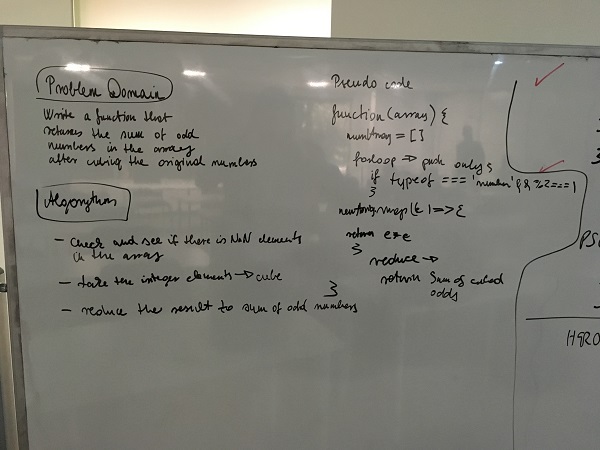 Problem Domain
Write a function that
returns the sum of odd
numbers in the array
after cubing the original numbers
Algorythm
- Check and see if there is NaN elements
in the array
- take the integer elements → cube
- reduce the result to sum of odd numbers
Pseudo code
function (array) {
numArray = []
forloop → push only
if typeof === 'number' && %2===1
}
map(e)=>{
return e*e
}
reduce →
return Sum of cubed
odds
}
PS